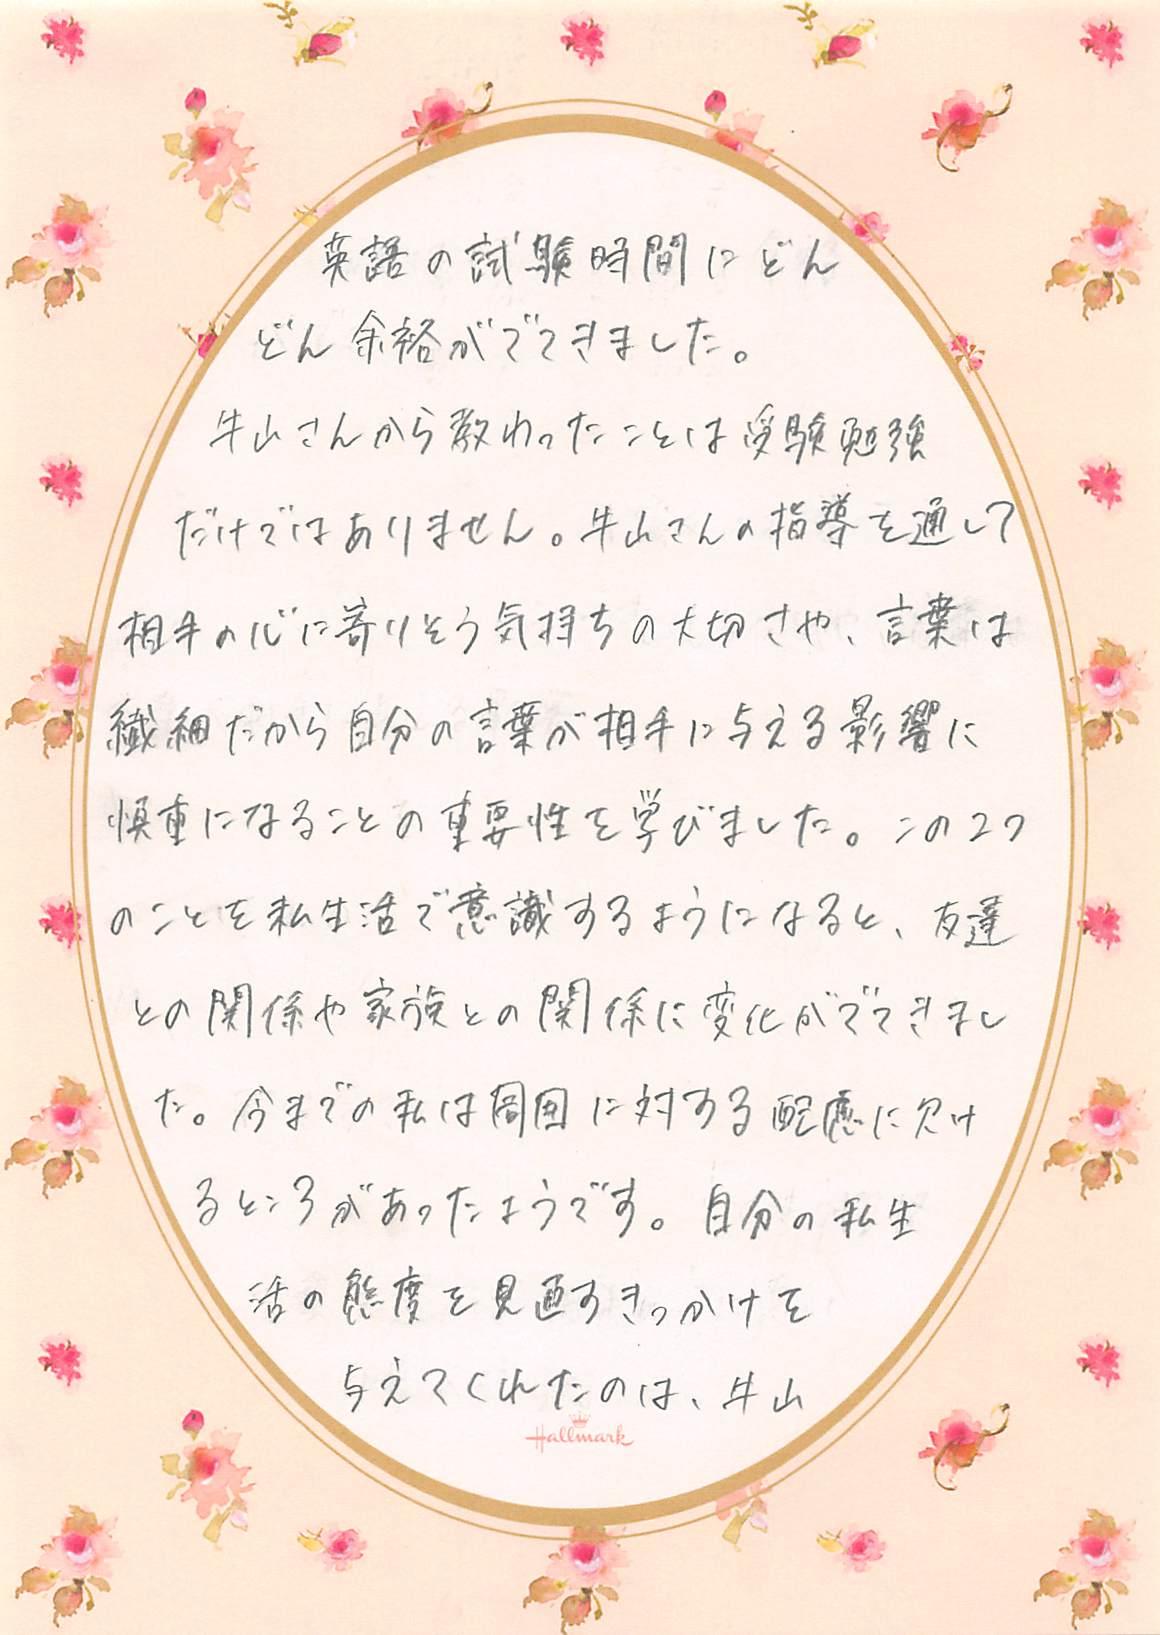 英語の試験時間にどん
どん余裕がでてきました。
牛山さんから教わったことは受験勉強
だけではありません。牛山さんの指導を通して
相手の心に寄りそう気持ちの大切さや、言葉は
繊細だから自分の言葉が相手に与える影響に
慎重になることの重要性を学びました。この2つ
のことを私生活で意識するようになると、友達
との関係や家族との関係に変化がでてきまし
た。今までの私は周囲に対する配慮に欠け
るところがあったようです。自分の私生
活の態度を見直すきっかけを
与えてくれたのは、牛山
Hallmark